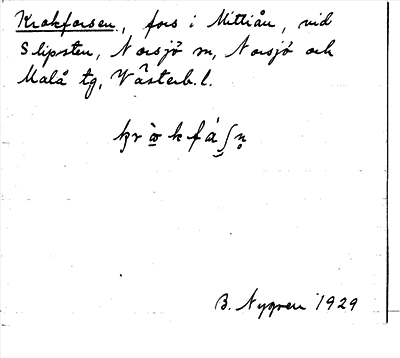 Krokforsen, fors i Mittiån, vid
Slipsten, Norsjö sn, Norsjö och
Malå tg, Västerb.l.
B. Nygren 1929